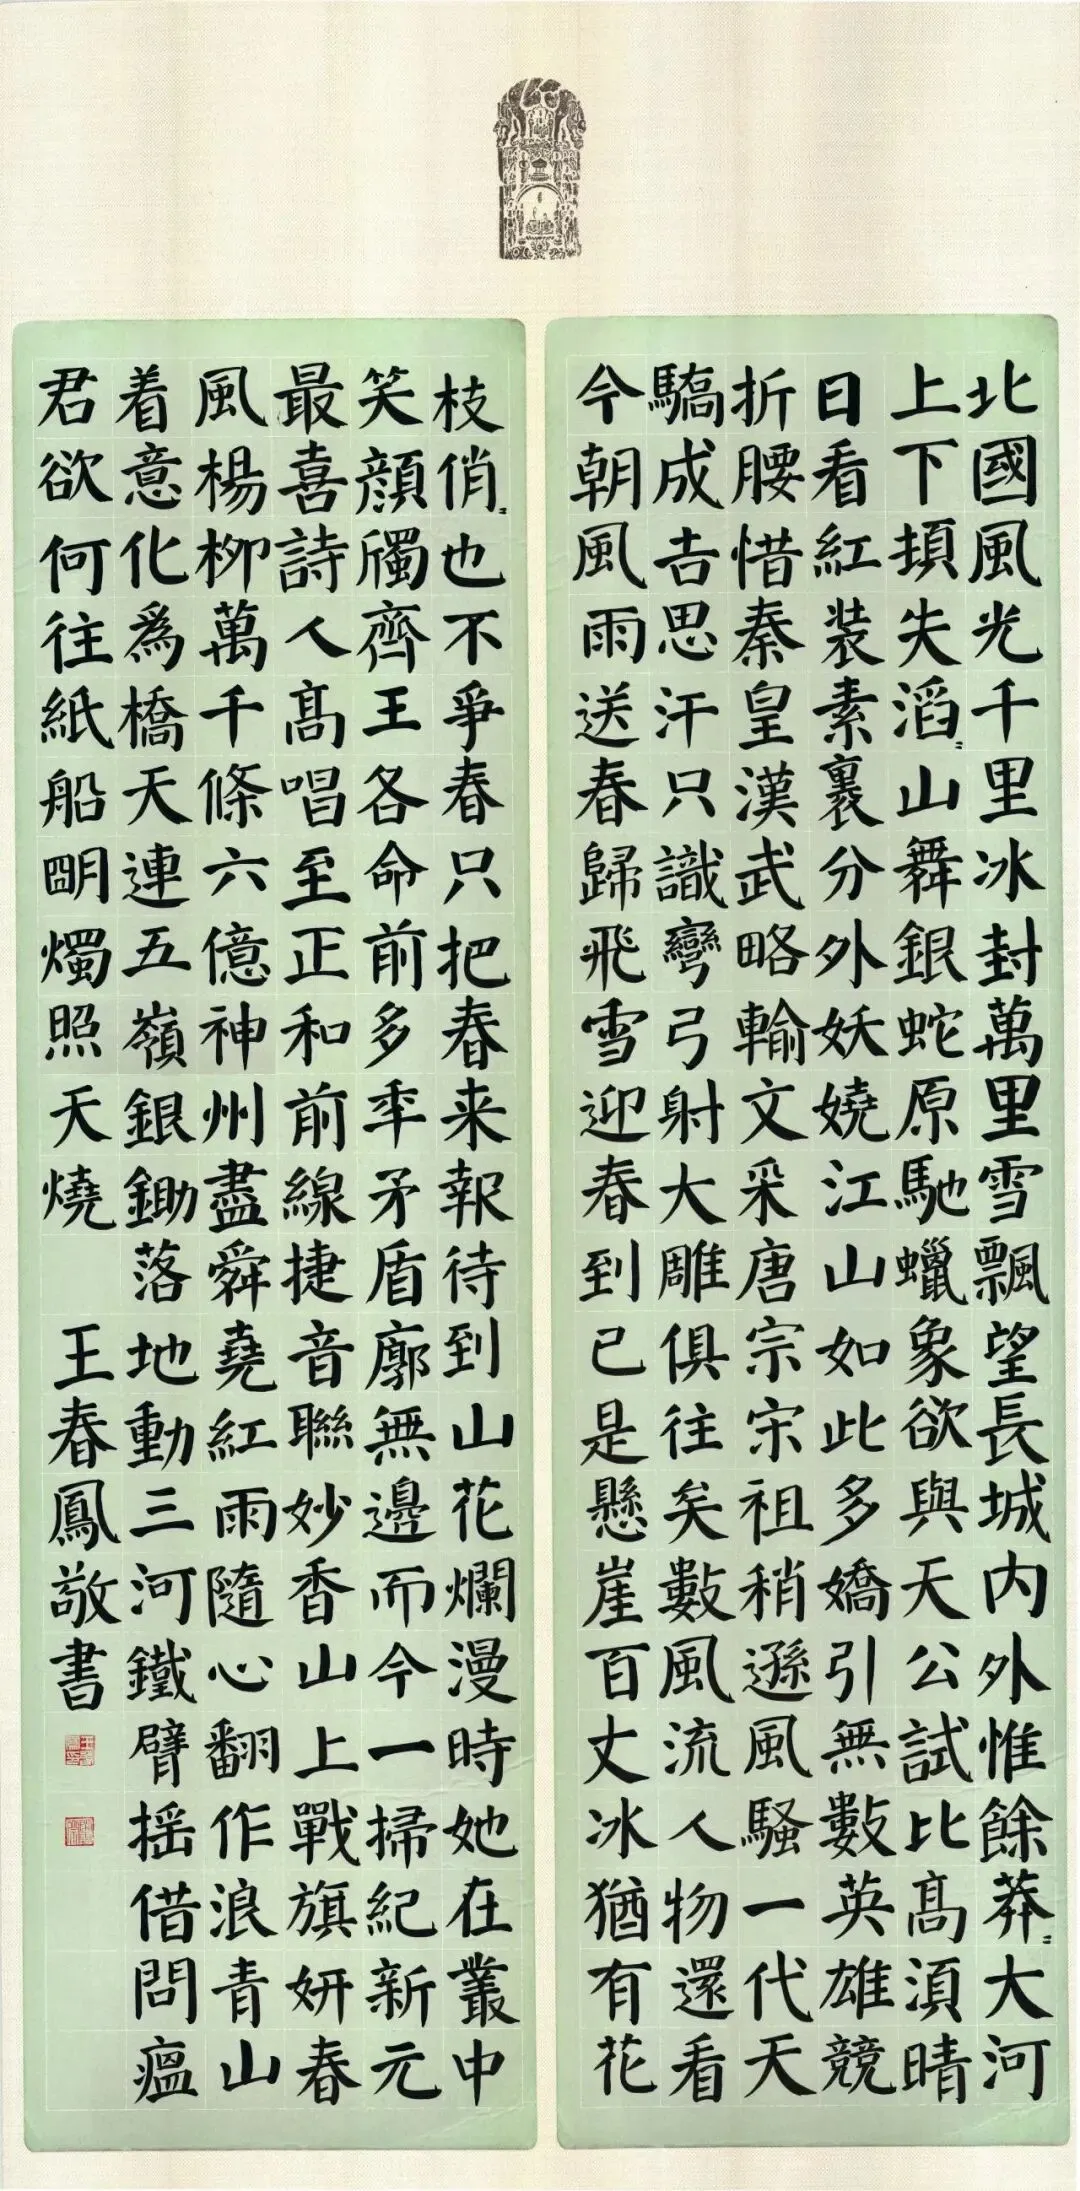 北國風光千里冰封萬里雪飄望長城内外惟餘莽〻大河
上下頓失滔〻山舞銀蛇原馳蠟象欲與天公試比髙須晴
日看紅装素裹分外妖嬈江山如此多嬌引無數英雄競
折腰惜秦皇漢武略輸文采唐宗宋祖稍遜風騷一代天
驕成吉思汗只識彎弓射大雕俱往矣數風流人物還看
今朝風雨送春歸飛雪迎春到已是懸崖百丈冰猶有花
枝俏〻也不爭春只把春来報待到山花爛漫時她在叢中
笑顔斶齊王各命前多年矛盾廓無邊而今一掃紀新元
最喜詩人髙唱至正和前線捷音聯妙香山上戰旗妍春
風楊柳萬千條六億神州盡舜堯紅雨隨心翻作浪青山
着意化爲橋天連五嶺銀鋤落地動三河鐵臂揺借問瘟
君欲何往紙船明燭照天燒 王春鳳敬書